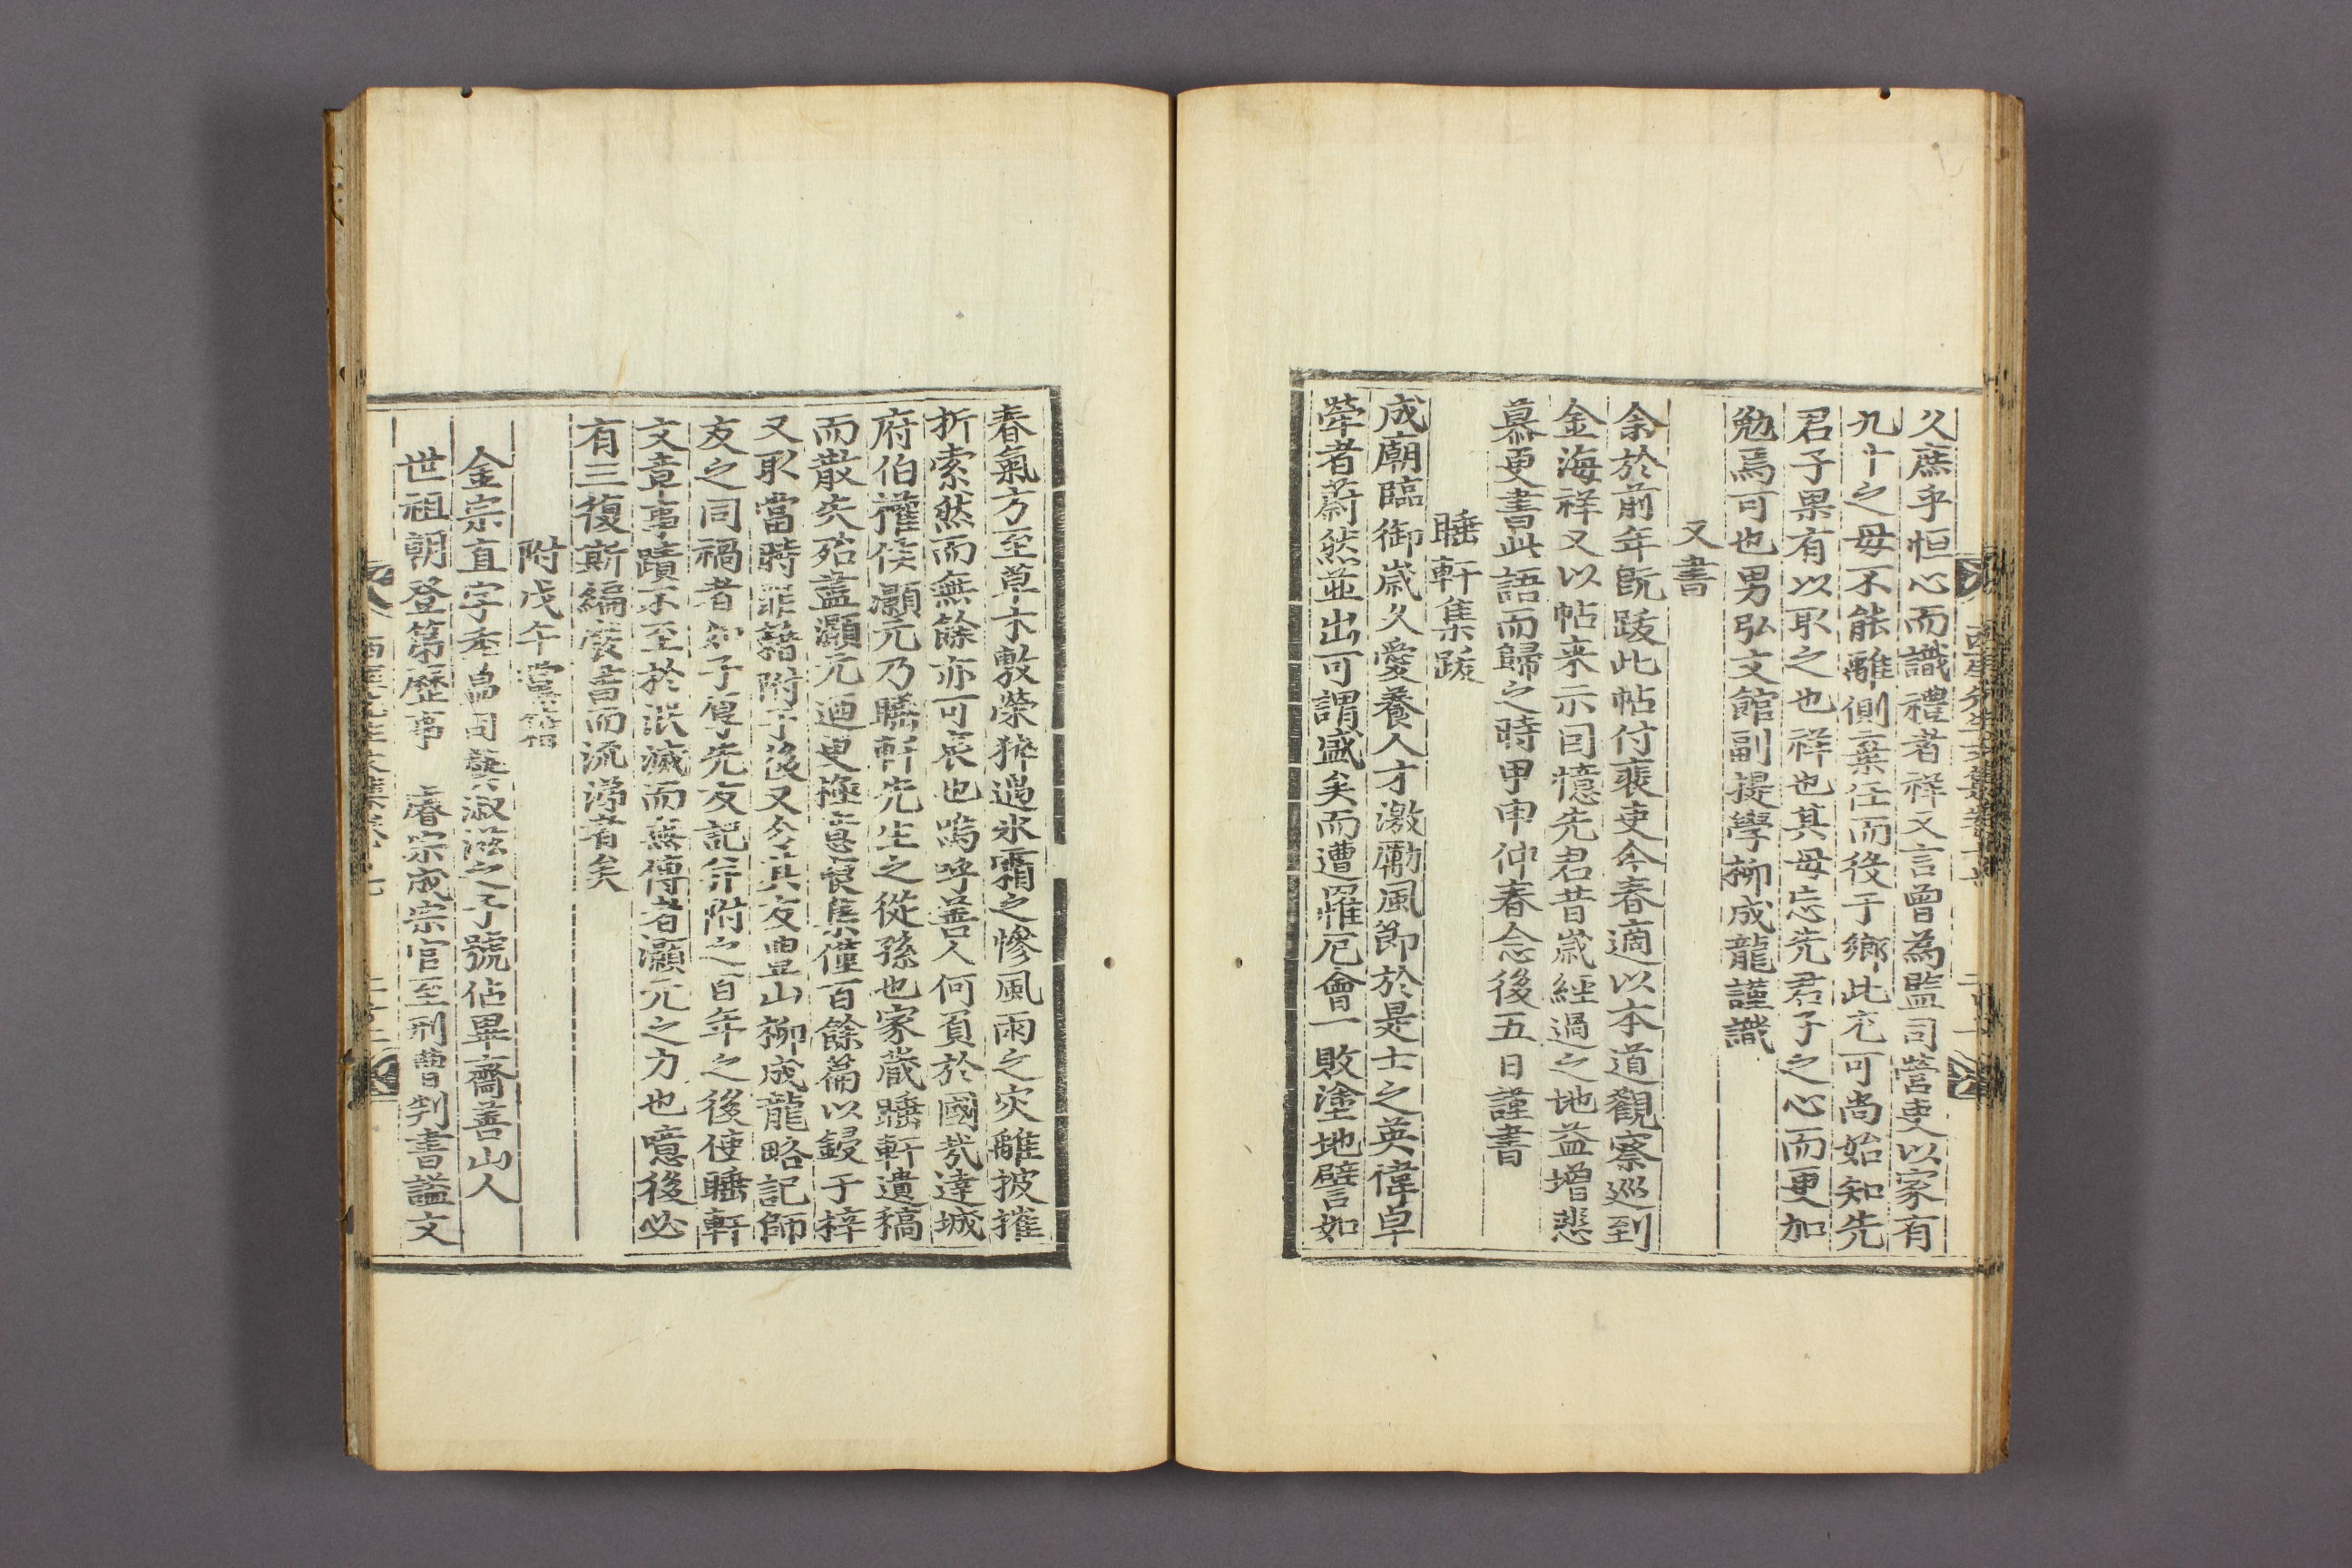 久庶乎恒心而識禮者祥又言曾為監司營吏以家有
九十之母不能離側棄任而役于鄉此尤可尚始知先
君子果有以取之也祥也其毋忘先君子之心而更加
勉焉可也男弘文館副提學柳成龍謹識
又書
余於前年旣跋此帖付裵吏今春適以本道觀察巡到
金海祥又以帖来示因憶先君昔歲經過之地益增悲
慕更書此語而歸之時甲申仲春念後五日謹書
睡軒集跋
成廟臨御歲久愛養人才激勵風節於是士之英偉卓
犖者蔚然並出可謂盛矣而遭罹厄會一敗塗地譬如
春氣方至草木敷榮猝遇氷霜之慘風雨之灾離披摧
折索然而無餘亦可哀也嗚呼善人何負於國哉達城
府伯權侯灝元乃睡軒先生之從孫也家藏睡軒遺稿
而散失殆盡灝元廼更極意裒集僅百餘篇以鋟于梓
又取當時罪籍附于後又令其友豊山柳成龍略記師
友之同禍者如子厚先友記并附之百年之後使睡軒
文章事蹟不至於泯滅而無傳者灝元之力也噫後必
有三復斯編廢書而流涕者矣
附戊午黨籍
金宗直字季昷司藝淑滋之子號佔畢齋善山人
世祖朝登第歷事 睿宗成宗官至刑曹判書謚文